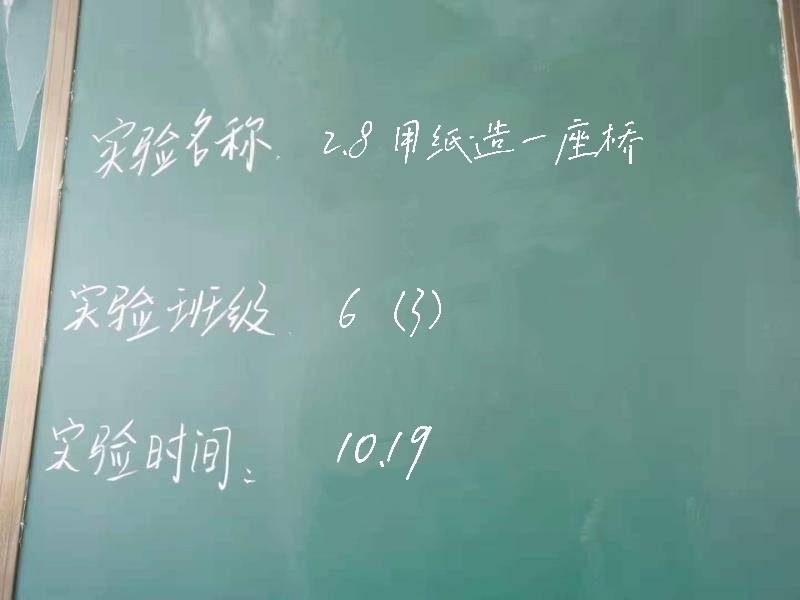 实验名称. 2.8 用纸造一座桥
实验班级. 6 (3)
实验时间: 10.19